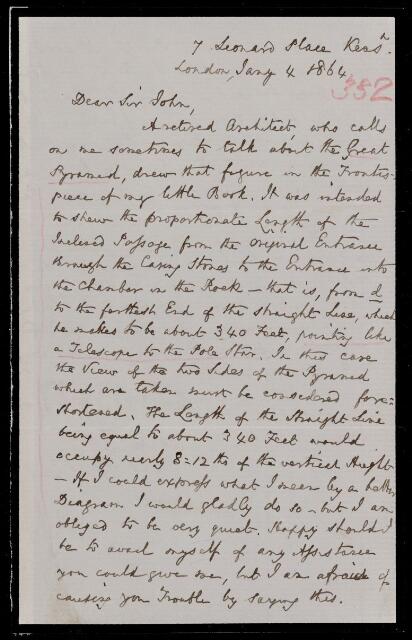 7 Leonard Place Kensn.
London, Jany 4 1864
352
Dear Sir John,
A retired Architect, who calls
on me sometimes to talk about the Great
Pyramid, drew that figure in the Frontis-
piece of my little Book. It was intended
to shew the proportionate Length of the
Inclined Passage from the original Entrance
through the Casing Stones to the Entrance into
the Chamber in the Rock – that is, from d
to the farthest End of the straight Line, which
he makes to be about 340 Feet, pointing like
a Telescope to the Pole Star. In this case
the View of the two Sides of the Pyramid
which are taken must be considered fore-
shortened. The Length of the Straight Line
being equal to about 340 Feet would
occupy nearly 8=12ths of the vertical Height
– If I could express what I mean by a better
Diagram I would gladly do so – but I am
obliged to be very quiet. Happy should I
be to avail myself of any Assistance
you could give me, but I am afraid of
causing you Trouble by saying this.